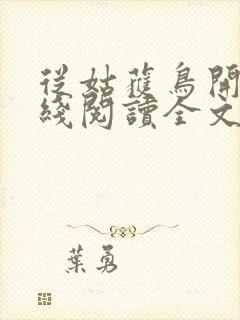 從姑獲鳥開
綫閱讀全文
葉勇